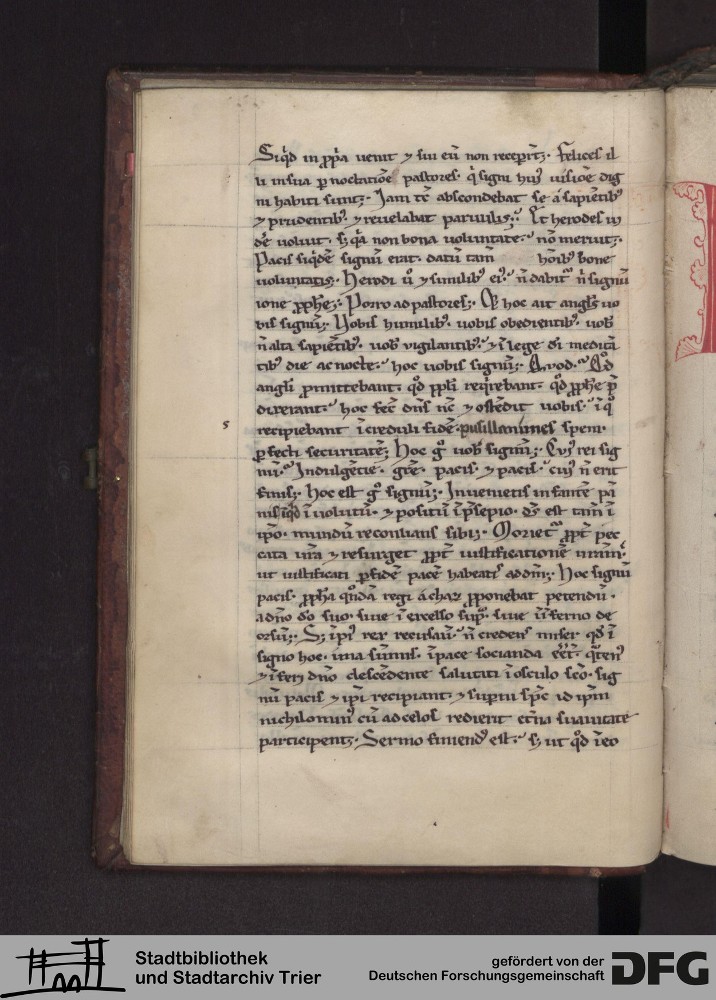 Siqd in ppa uenit ⁊ sui eu non recepert. felices il
li in sua p noctatioe pastores. q signi hui uisioe dig
ni habiti sunt. Jam tc abscondebat se a sapietib
⁊ prudentib ⁊ reuelabat paruulis. Et herodes ui
de uoluit. s; qa non bona uoluntate. no meruit.
Pacis siqde signu erat. datu tam hoib bone
uoluntatis. Herodi u ⁊ similib ei. n dabit n signu
ione pphe. Porro ad pastores. hoc ait angls uo
bis signu. Uobis humilib. uobis obedientib. uob
n alta sapietib. uob uigilantib. ⁊ i lege di medita
tib die ac nocte. hoc uobis signu. Quod. Qd
angli pmittebant. qd ppli reqrebant. qd pphe p
dixerant. hoc fec dns nc ⁊ ostedit uobis. i q
recipiebant i creduli fide. pusillanimes spem.
pfecti securitate. Hoc g uob signu. Cui rei sig
nu. Indulgetie. gre. pacis. ⁊ pacis. cui n erit
finis. Hoc est g signu. Inuenietis infante pa
nis i uolutu. ⁊ positu i psepio. ds est tam i
ipo. mundu reconcilians sibi. Moriet ppt pec
cata ura ⁊ resurget ppt iustificatione uram.
ut iustificati p fide pace habeatis ad dm. Hoc signu
pacis. ppha qnda regi achaz pponebat petendu.
a dno do suo. siue i excelso sup. siue i inferno de
orsu. S; ipi rex recusau. n credens miser qd i
signo hoc. ima sumis. i pace socianda eet. qten
⁊ i feri dno descedente salutati i osculo sco. sig
nu pacis ⁊ ipi recipiant. ⁊ supni spc id ipm
nichilominus cu ad celos redierit etna suauitate
participent. Sermo finiend est. s; ut qd i eo
5
Stadtbibliothek
und Stadtarchiv Trier
gefördert von der
Deutschen Forschungsgemeinschaft
DFG